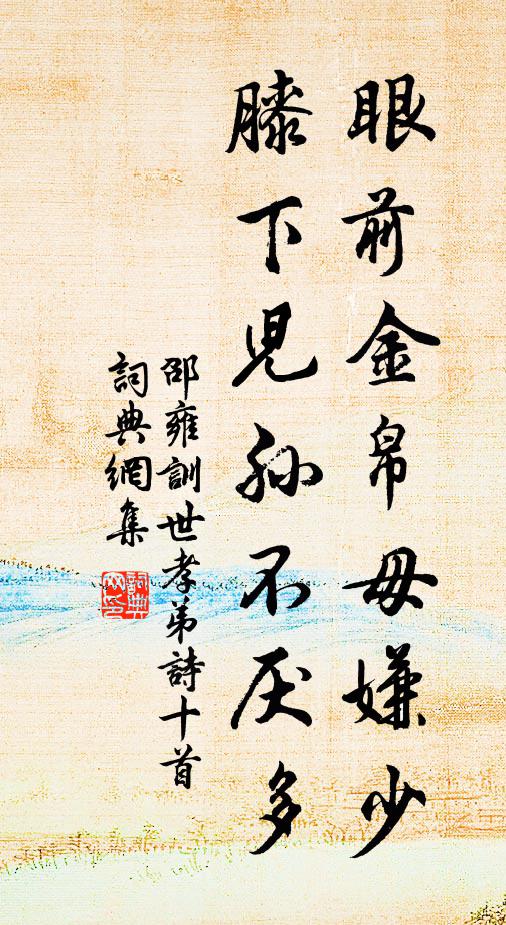 眼前金帛毋嫌少
膝下児孫不厌多
邵雍訓世孝弟詩十首
詞典網集
詞典網印